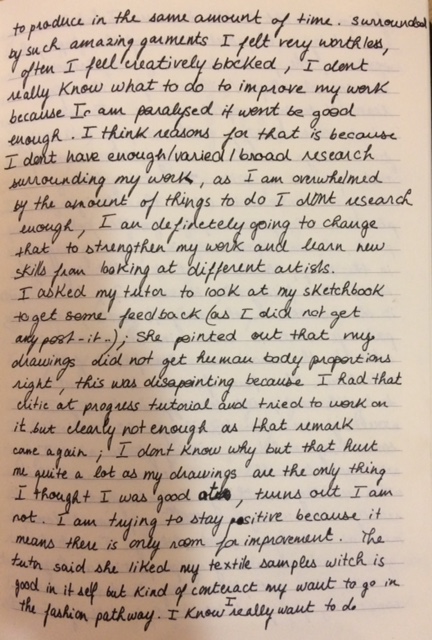 to produce in the same amount of time. surrounded
by such amazing garments I felt very worthless,
often I feel creatively blocked, I dont
really know what to do to improve my work
because I am paralysed it wont be good
enough. I think reasons for that is because
I dont have enough/varied/broad research
surrounding my work, as I am overwhelmed
by the amount of things to do I dont research
enough, I am definetely going to change
that to strengthen my work and learn new
skills from looking at different artists.
I asked my tutor to look at my sketchbook
to get some feedback (as I did not get
any post-it..); she pointed out that my
drawings did not get human body proportions
right, this was disapointing because I had that
critic at progress tutorial and tried to work on
it but clearly not enough as that remark
came again; I dont know why but that hurt
me quite a lot as my drawings are the only thing
I thought I was good at, turns out I am
not. I am trying to stay positive because it
means there is only room for improvement. The
tutor said she liked my textile samples witch is
good in it self but kind of conteract my want to go in
the fashion pathway. I know I really want to do